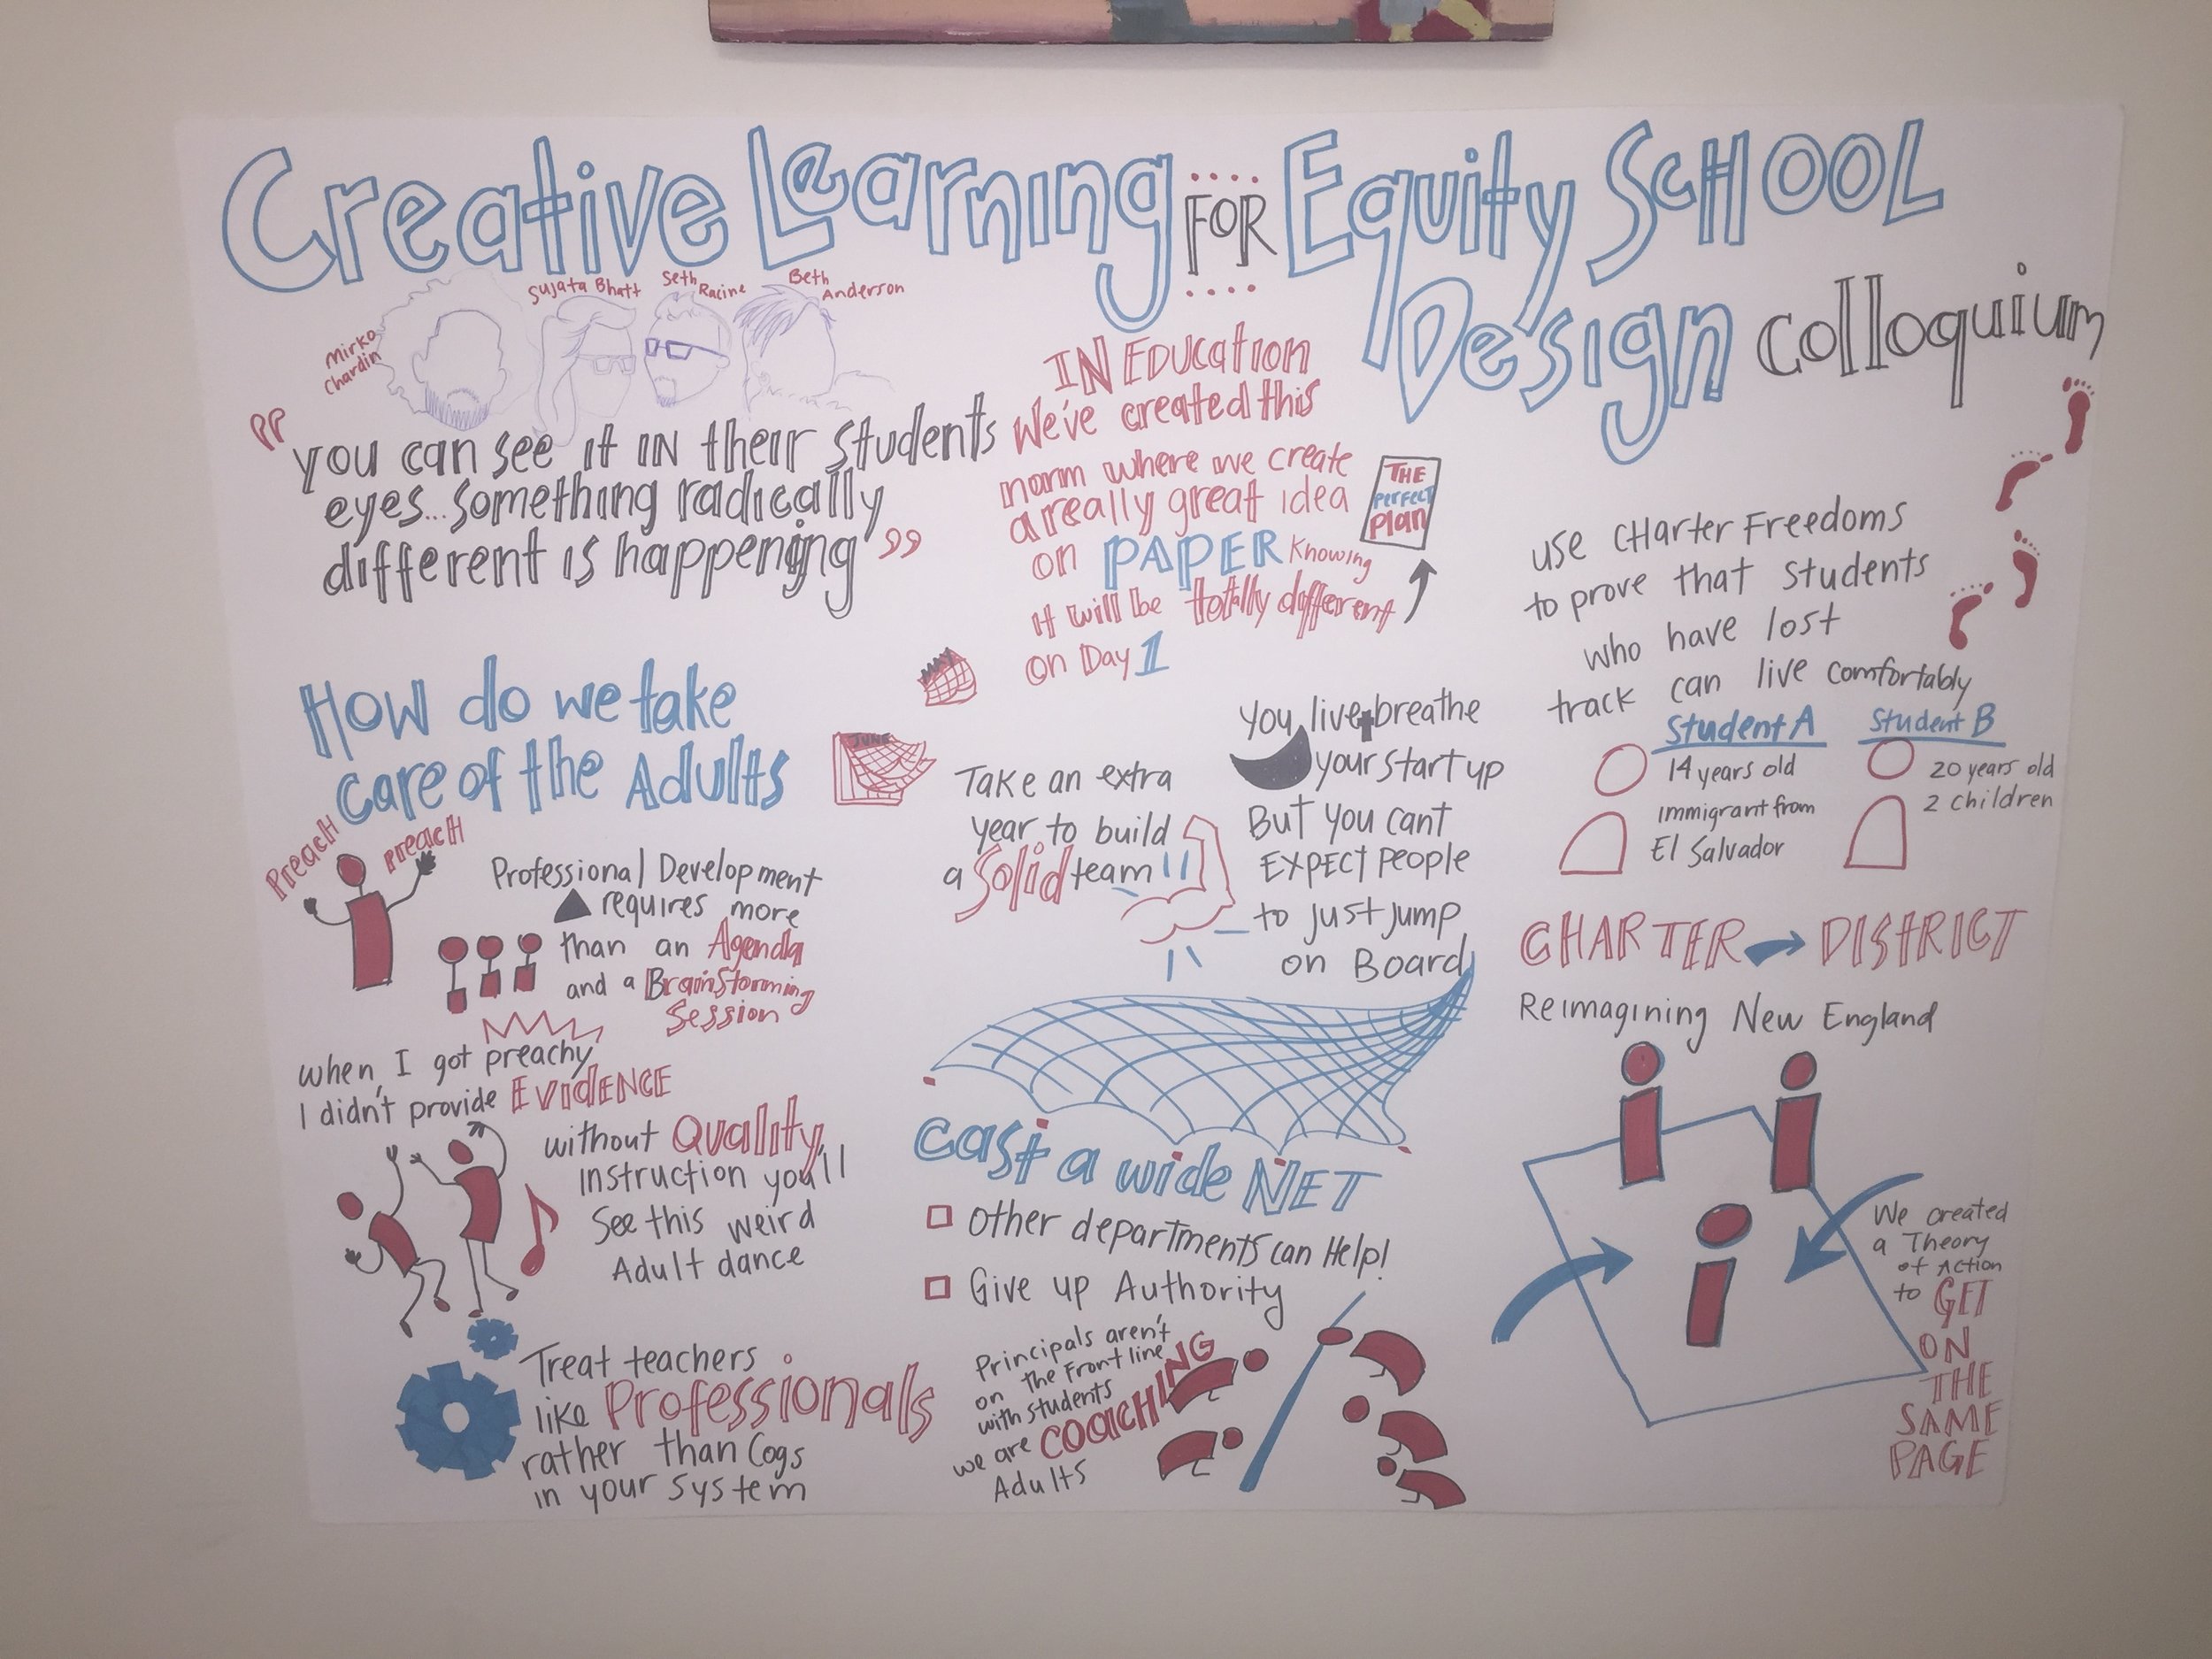 Creative Learning FOR Equity SCHOOL
Design Colloquium
Mirko
Chardin
Sujata Bhatt
Seth
Racine
Beth
Anderson
“you can see it IN their students
eyes... something radically
different is happening”
IN Education
We've created this
norm where we create
a really great idea
on PAPER Knowing
it will be totally different
on Day 1
THE
PERFECT
Plan
use CHarter Freedoms
to prove that students
who have lost
track can live comfortably
Student A
14 years old
immigrant from
El Salvador
Student B
20 years old
2 children
CHARTER DISTRICT
Reimagining New England
We created
a Theory
of Action
to GET
ON
THE
SAME
PAGE
How do we take
care of the Adults
PreacH
PreacH
Professional Development
requires more
than an Agenda
and a BrainStorming
Session
when I got preachy
I didn't provide EVidENCE
without Quality,
instruction you'll
See this weird
Adult dance
Treat teachers
like Professionals
rather than Cogs
in your System
MAY
JUNE
Take an extra
year to build
a Solid team
You live + breathe
your start up
But you cant
EXPECT people
to just jump
on Board
cast a wide NET
other departments can Help!
Give up Authority
Principals aren't
on the Front line
with students
we are COACHING
Adults